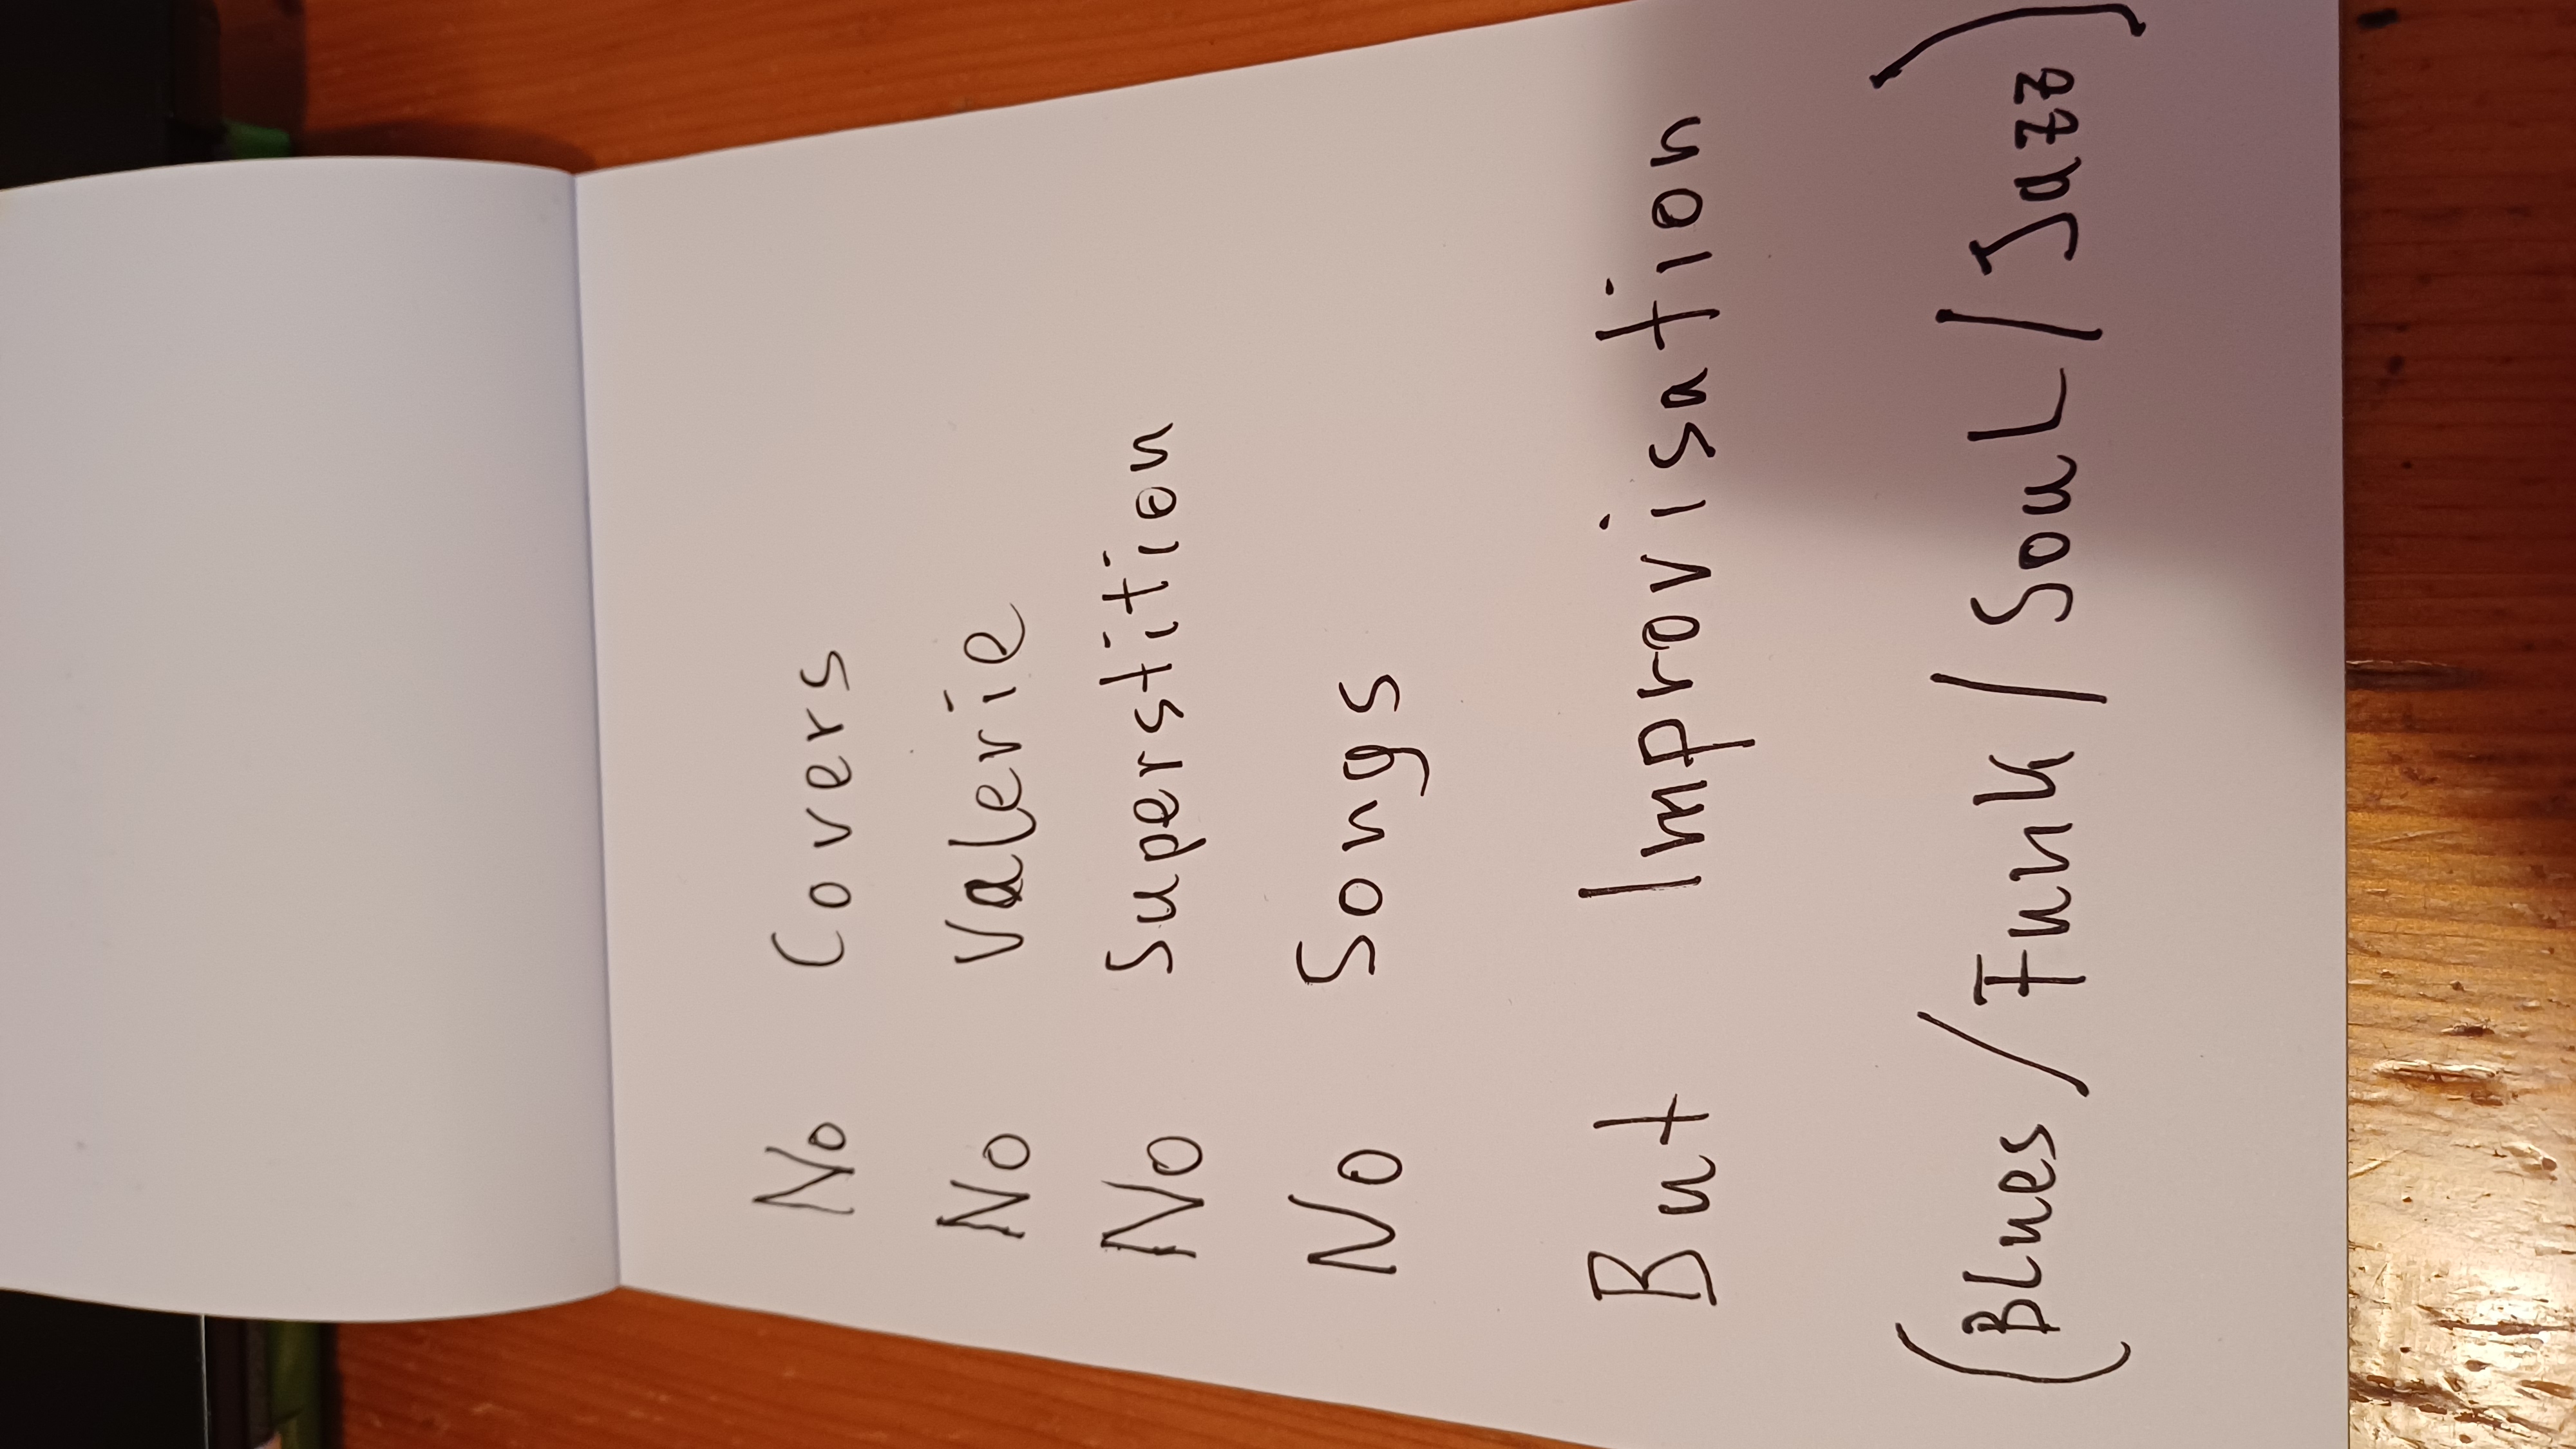 No Covers
No Valerie
No Superstition
No Songs
But Improvisation
(BLues / Funk / SouL / Jazz)